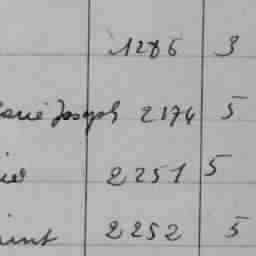 1286 3
Marie Joseph 2174 5
2251 5
2252 5